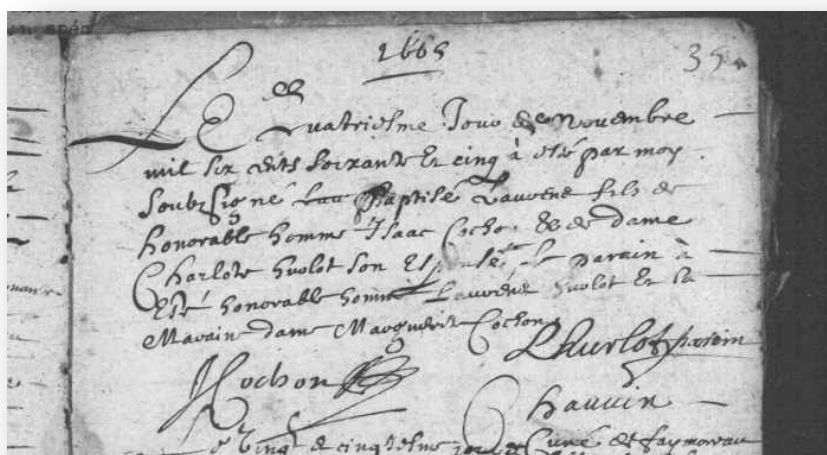 1665
35
Le Quatriesme Jour de Novembre
mil six cents soixante et cinq à esté par moy
soubsigné Baptisé Laurens fils de
honorable homme Isaac Cochon & de dame
Charlote hurlot son Espouse le parain à
Esté honorable homme Laurens hurlot Et la
Maraine dame Marguerite Cochon
LHurlot parain
JCochon
Chauvin
Le vingt & cinqiesme jour Curé de faymoreau